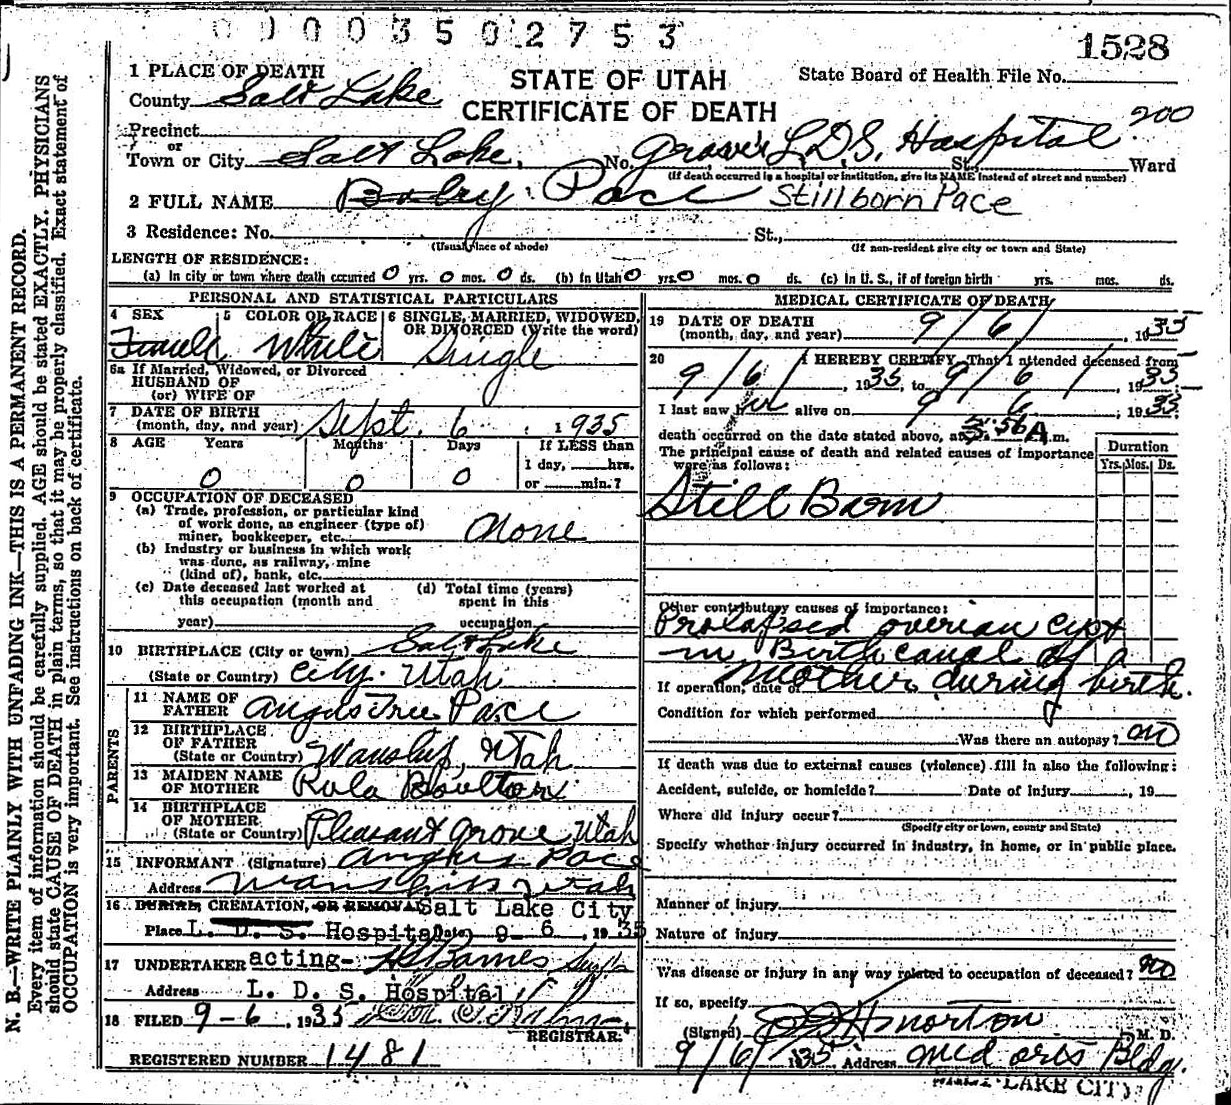 0000350 2753
1528
1 PLACE OF DEATH
STATE OF UTAH
State Board of Health File No.
County Salt Lake
CERTIFICATE OF DEATH
200
Precinct
or
Town or City Salt Lake, No. Groves L.D.S. Hospital St., Ward
(If death occurred in a hospital or institution, give its NAME instead of street and number)
2 FULL NAME Baby Pace Stillborn Pace
3 Residence: No. St.,
(Usual place of abode) (If non-resident give city or town and State)
LENGTH OF RESIDENCE:
(a) In city or town where death occurred 0 yrs. 0 mos. 0 ds. (b) In Utah 0 yrs. 0 mos. 0 ds. (c) In U. S., if of foreign birth yrs. mos. ds.
PERSONAL AND STATISTICAL PARTICULARS
4 SEX 5 COLOR OR RACE 6 SINGLE, MARRIED, WIDOWED, OR DIVORCED (Write the word)
Female White Single
6a If Married, Widowed, or Divorced
HUSBAND OF
(or) WIFE OF
7 DATE OF BIRTH
(month, day, and year) Sept. 6, 1935
8 AGE Years Months Days If LESS than
1 day, hrs.
0 0 0 or min.?
9 OCCUPATION OF DECEASED
(a) Trade, profession, or particular kind
of work done, as engineer (type of)
miner, bookkeeper, etc. None
(b) Industry or business in which work
was done, as railway, mine
(kind of), bank, etc.
(c) Date deceased last worked at (d) Total time (years)
this occupation (month and spent in this
year) occupation
10 BIRTHPLACE (City or town) Salt Lake
(State or Country) City. Utah
PARENTS
11 NAME OF
FATHER Angus Tree Pace
12 BIRTHPLACE
OF FATHER
(State or Country) Wanship, Utah
13 MAIDEN NAME
OF MOTHER Rula Boulton
14 BIRTHPLACE
OF MOTHER
(State or Country) Pleasant Grove, Utah
15 INFORMANT (Signature) Angus Pace
Address Wanship Utah
16 BURIAL CREMATION, OR REMOVAL Salt Lake City
Place L. D. S. Hospital Date 9- 6, 1935
17 UNDERTAKER acting- H S Barnes Supt
Address L. D. S. Hospital
18 FILED 9-6, 1935
REGISTRAR.
REGISTERED NUMBER 1481
MEDICAL CERTIFICATE OF DEATH
19 DATE OF DEATH
(month, day, and year) 9/6/, 1935
20 I HEREBY CERTIFY, That I attended deceased from
9/6/, 1935, to 9/6/, 1935
I last saw her alive on 9 6, 1935
death occurred on the date stated above, at 3:56 A.m.
The principal cause of death and related causes of importance
were as follows:
Duration
Yrs. Mos. Ds.
Still Born
Other contributory causes of importance:
Prolapsed overian cyst
in Birth canal of
mother during birth.
If operation, date of
Condition for which performed
Was there an autopsy? no
If death was due to external causes (violence) fill in also the following:
Accident, suicide, or homicide? Date of injury , 19
Where did injury occur?
(Specify city or town, county and State)
Specify whether injury occurred in industry, in home, or in public place.
Manner of injury
Nature of injury
Was disease or injury in any way related to occupation of deceased? no
If so, specify
(Signed) Morton M. D.
9/6/35 Address Med Arts Bldg.
LAKE CITY
N. B.—WRITE PLAINLY WITH UNFADING INK—THIS IS A PERMANENT RECORD.
Every item of information should be carefully supplied. AGE should be stated EXACTLY. PHYSICIANS
should state CAUSE OF DEATH in plain terms, so that it may be properly classified. Exact statement of
OCCUPATION is very important. See instructions on back of certificate.